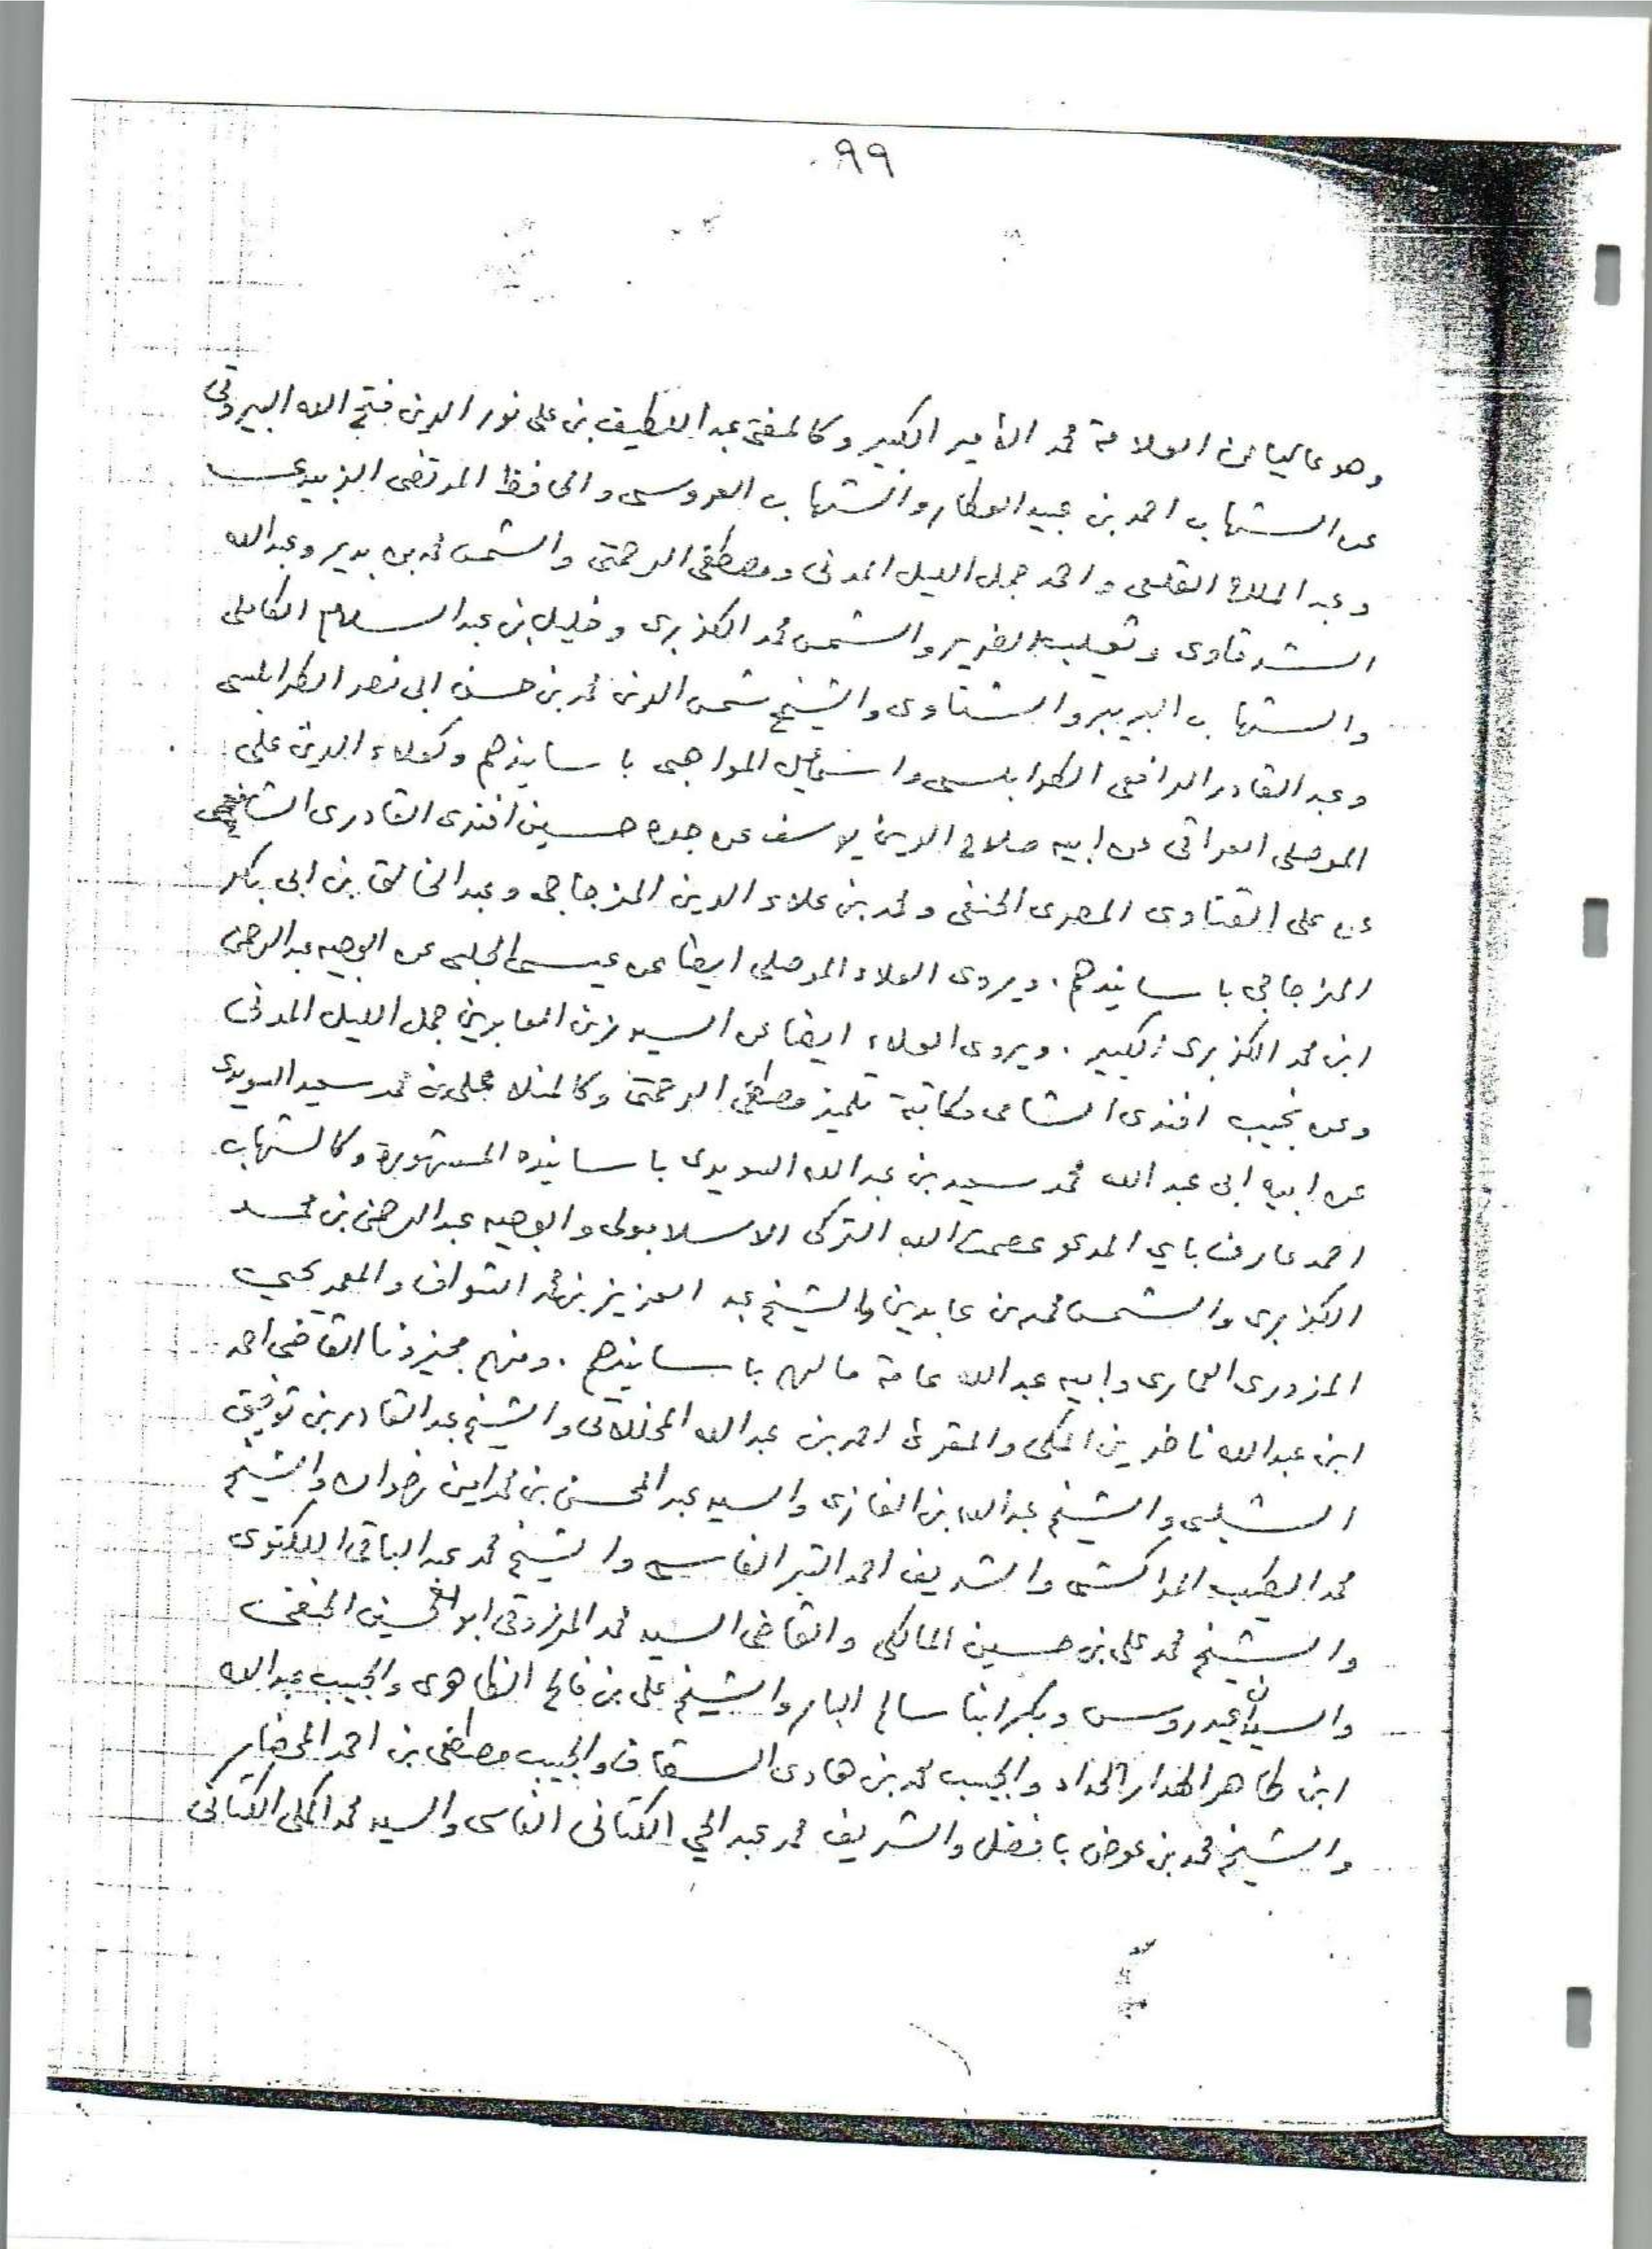 ٩٩
وهو عاليا عن العلامة محمد الأمير الكبير وكالمفتى عبد اللطيف بن على نور الدين فتح الله البيروتى
عن الشهاب احمد بن عبيد العطار والشهاب العروسى والحافظ المرتضى الزبيدى
وعبد الملك القلعى واحمد جمل الليل المدنى ومصطفى الرحمتى والشمس محمد بن بدير وعبدالله
الشرقاوى وثعيلب الضرير والشمس محمد الكزبرى وخليل بن عبد السلام الكاملى
والشهاب البربير والشناوى والشيخ شمس الدين محمد بن حسن ابى نصر الطرابلسى
وعبد القادر الرافعى الطرابلسى واسماعيل المواهبى باسانيدهم وكعلاء الدين على
الموصلى العراقى عن ابيه صلاح الدين يوسف عن جده حسين افندى القادرى الشافعى
عن على القناوى المصرى الحنفى ومحمد بن علاء الدين المزجاجى وعبد الخالق بن ابى بكر
المزجاجى باسانيدهم . ويروى العلاء الموصلى ايضا عن عيسى الحلبى عن الوجيه عبد الرحمن
ابن محمد الكزبرى الكبير . ويروى العلاء ايضا عن السيد زين العابدين جمل الليل المدنى
وعن نجيب افندى الشامى مكاتبة تلميذ مصطفى الرحمتى وكالمنلا على بن محمد سعيد السويدى
عن ابيه ابى عبد الله محمد سعيد بن عبد الله السويدى باسانيده المشهورة وكالشهاب
احمد عارف باي المدعو عصمت الله التركى الاسلابولى والوجيه عبد الرحمن بن محمد
الكزبرى والشمس محمد بن عابدين والشيخ عبد العزيز بن محمد الشواف والمعمر يحيى
المزورى العمارى وابيه عبد الله عامة مالهم باسانيدهم . ومنهم مجيزونا القاضى احمد
ابن عبد الله ناضرين المكى والمقرئ احمد بن عبد الله المخللاتى والشيخ عبد القادر بن توفيق
الشلبى والشيخ عبد الله بن الغازى والسيد عبد المحسن بن محمد امين رضوان والشيخ
محمد الطيب المراكشى والشريف احمد التبر الفاسى والشيخ محمد عبد الباقى اللكنوى
والشيخ محمد على بن حسين المالكى والقاضى السيد محمد المرزوقى ابو الحسين الحنفى
والسيدان عيدروس وبكر ابنا سالم البار والشيخ على بن فالح الظاهرى والحبيب عبد الله
ابن طاهر الهدار الحداد والحبيب محمد بن هادى السقاف والحبيب مصطفى بن احمد المحضار
والشيخ محمد بن عوض بافضل والشريف محمد عبد الحي الكتانى الفاسى والسيد محمد المكى الكتانى